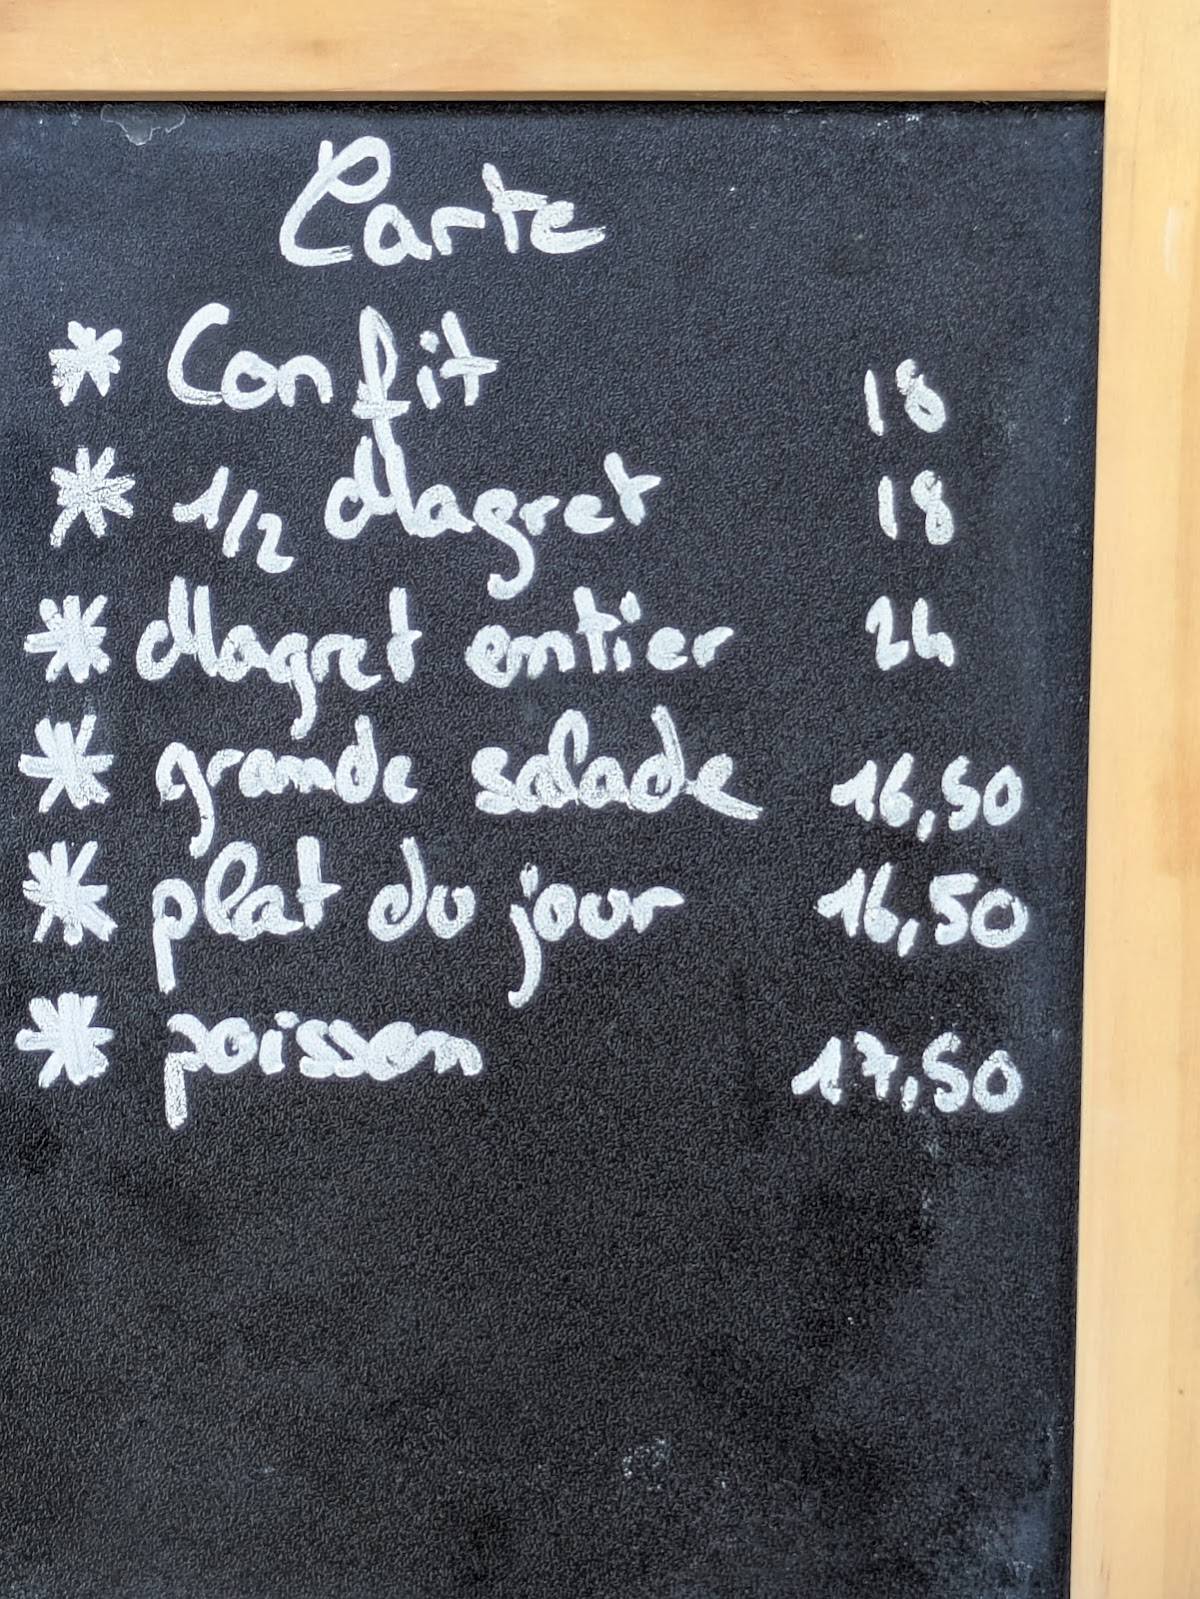 Carte
* Confit 18
* 1/2 Magret 18
* Magret entier 24
* grande salade 16,50
* plat du jour 16,50
* poisson 17,50